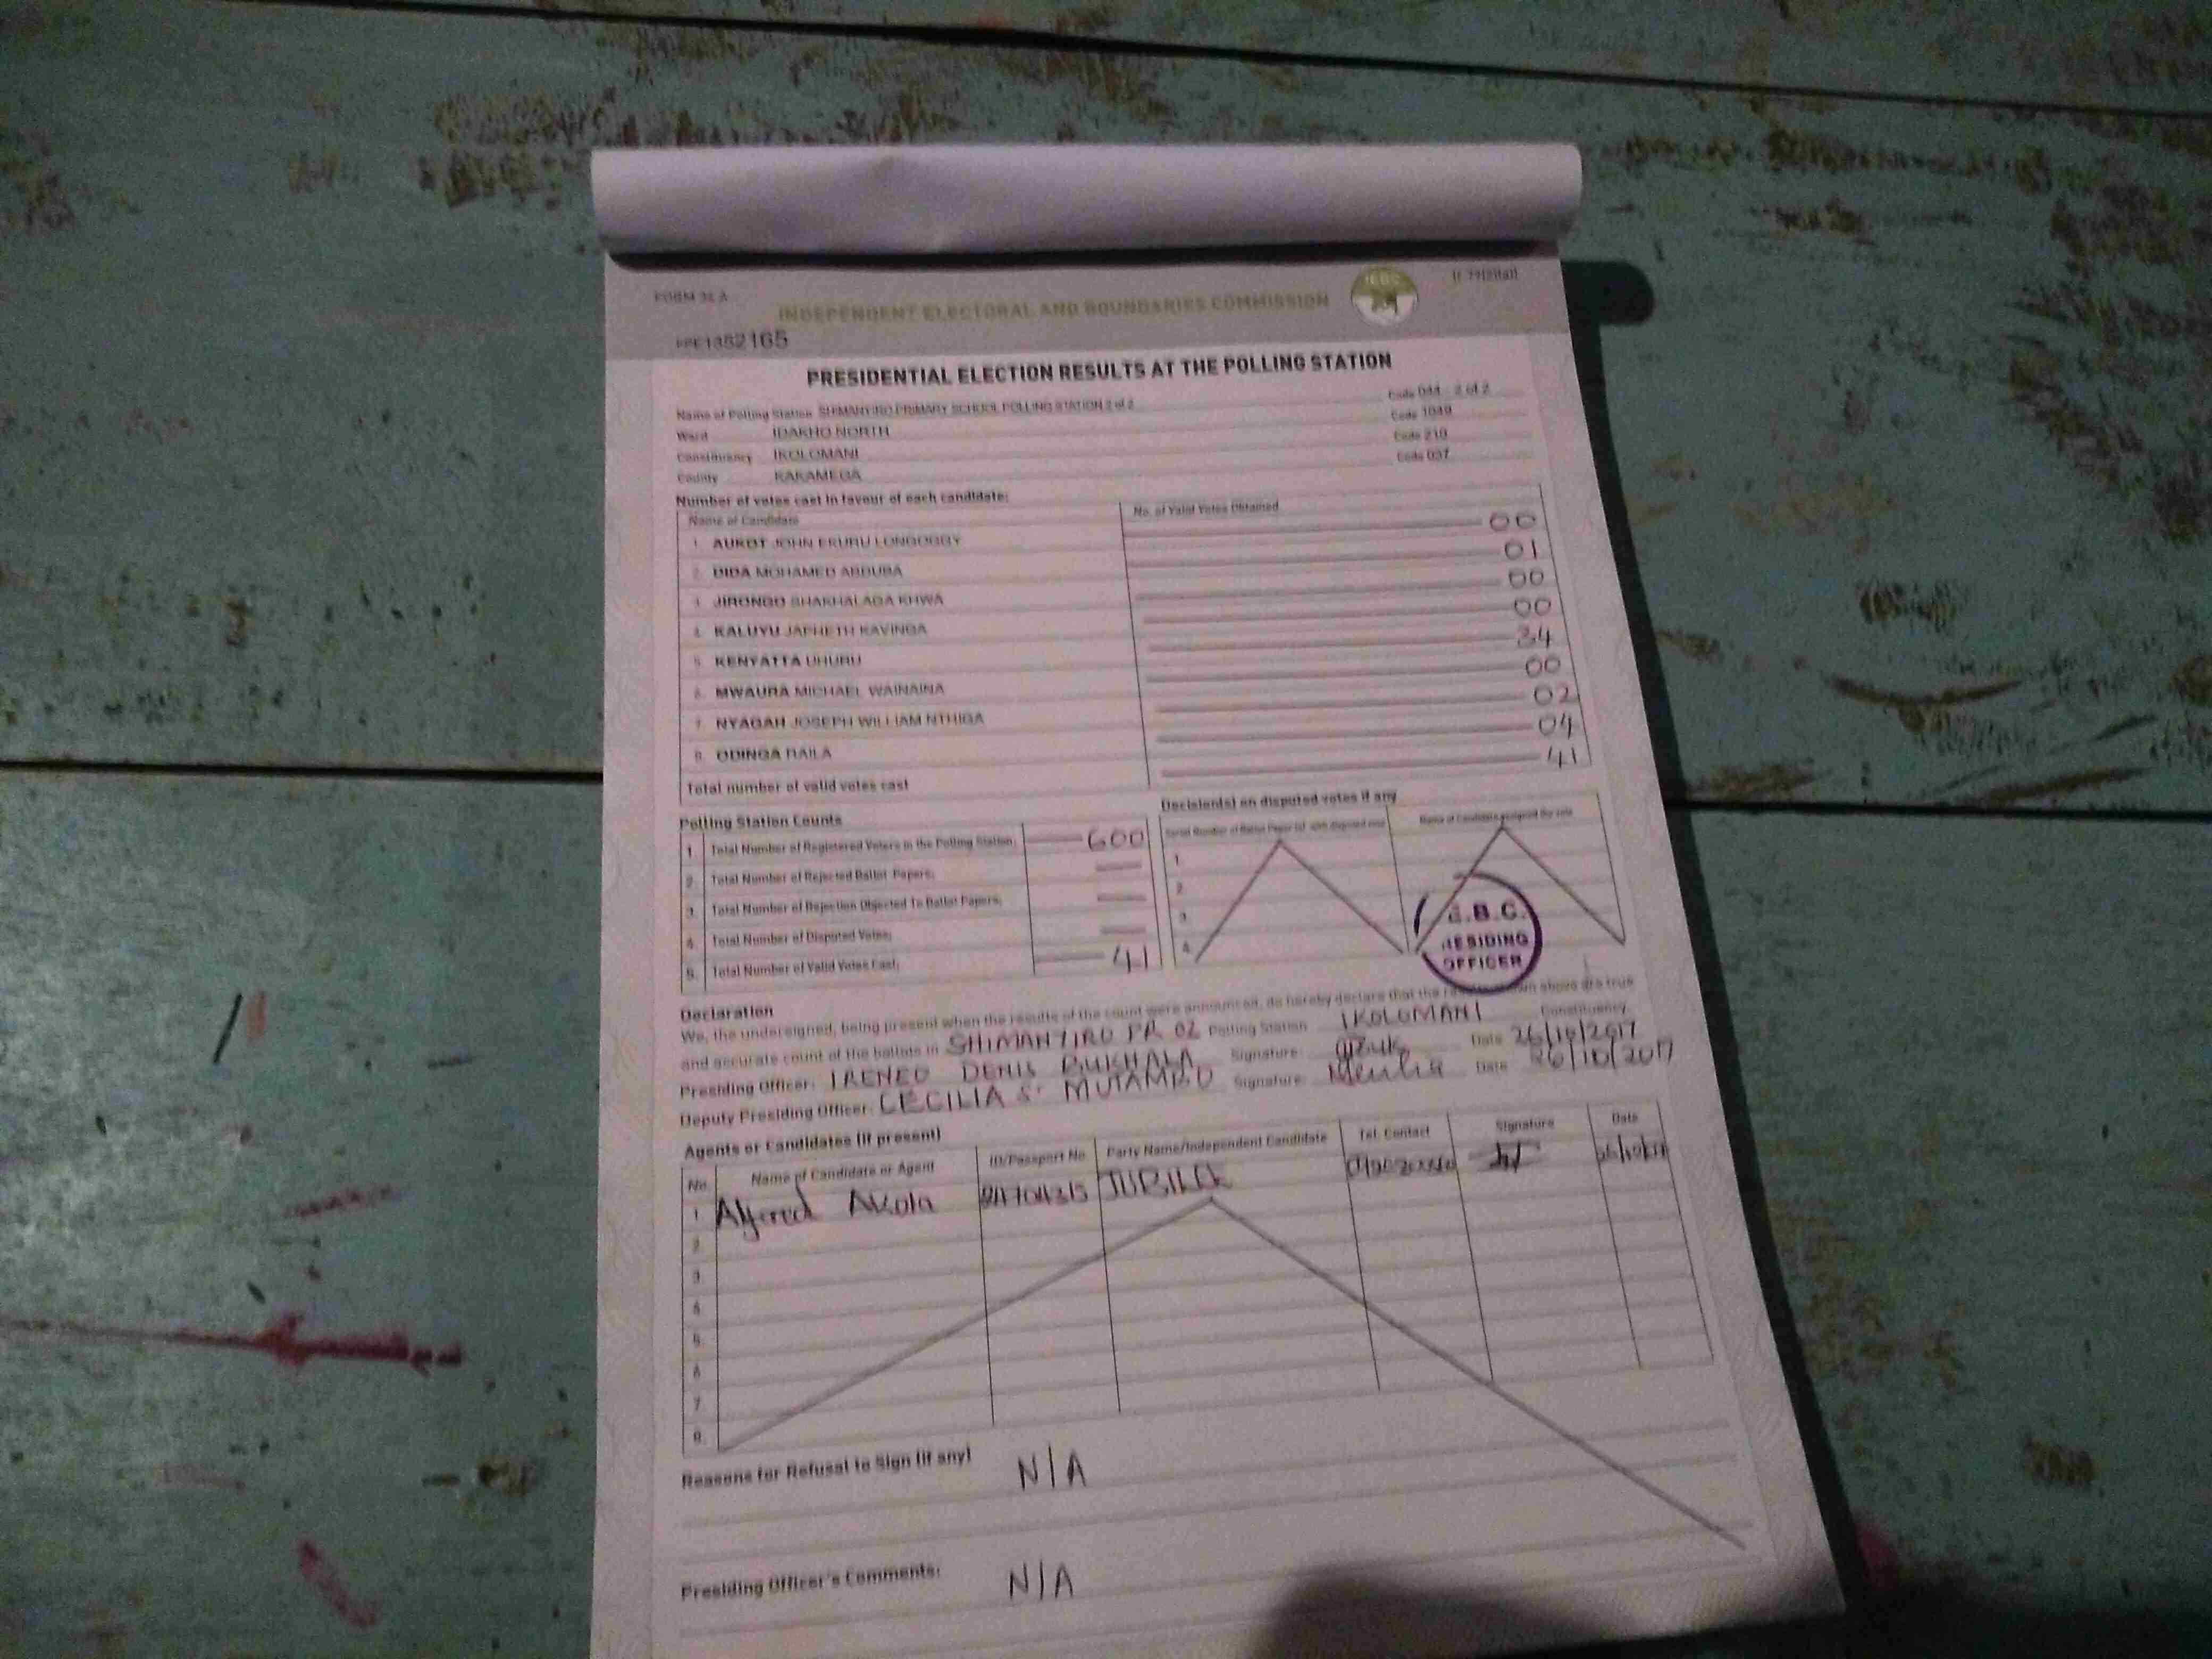 FORM 34 A
INDEPENDENT ELECTORAL AND BOUNDARIES COMMISSION
IEBC
PRESIDENTIAL ELECTION RESULTS AT THE POLLING STATION
Name of Polling Station SHIMANYIRO PRIMARY SCHOOL POLLING STATION 2 of 2 Code 044 - 2 of 2
Ward IDAKHO NORTH Code 1049
Constituency IKOLOMANI Code 210
County KAKAMEGA Code 037
Number of votes cast in favour of each candidate:
Name of Candidate No. of Valid Votes Obtained
1. AUKOT JOHN EKURU LONGOGGY 00
2. DIDA MOHAMED ABDUBA 01
3. JIRONGO SHAKHALAGA KHWA 00
4. KALUYU JAPHETH KAVINGA 00
5. KENYATTA UHURU 34
6. MWAURA MICHAEL WAINAINA 00
7. NYAGAH JOSEPH WILLIAM NTHIGA 02
8. ODINGA RAILA 04
Total number of valid votes cast 41
Polling Station Counts
1. Total Number of Registered Voters in the Polling Station; 600
2. Total Number of Rejected Ballot Papers; —
3. Total Number of Rejection Objected To Ballot Papers; —
4. Total Number of Disputed Votes; —
5. Total Number of Valid Votes Cast; 41
Decision(s) on disputed votes if any
1
2.
3.
4.
.B.C.
RESIDING
OFFICER
Declaration
We, the undersigned, being present when the results of the count were announced, do hereby declare that the shown above are true
and accurate count of the ballots in SHIMANYIRO PR 02 Polling Station IKOLOMANI Constituency
Presiding Officer: IRENEO DENIS BUKHALA Signature: Date 26/10/2017
Deputy Presiding Officer: CECILIA S. MUTAMBO Signature: Date 26/10/2017
Agents or Candidates (if present)
No. Name of Candidate or Agent ID/Passport No Party Name/Independent Candidate Tel. Contact Signature Date
1 Alfred Akola JUBILEE
2
3
4
5
6
7
8
Reasons for Refusal to Sign (if any) N/A
Presiding Officer's Comments: N/A